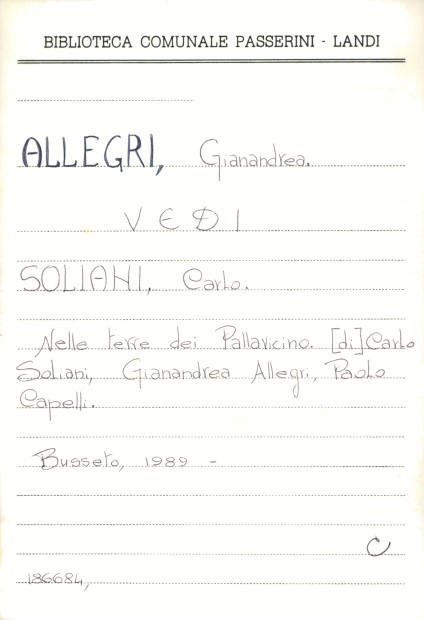 BIBLIOTECA COMUNALE PASSERINI - LANDI
ALLEGRI, Gianandrea.
VEDI
SOLIANI, Carlo.
Nelle terre dei Pallavicino. [di] Carlo
Soliani, Gianandrea Allegri, Paolo
Capelli.
Busseto, 1989 -
C
186684,